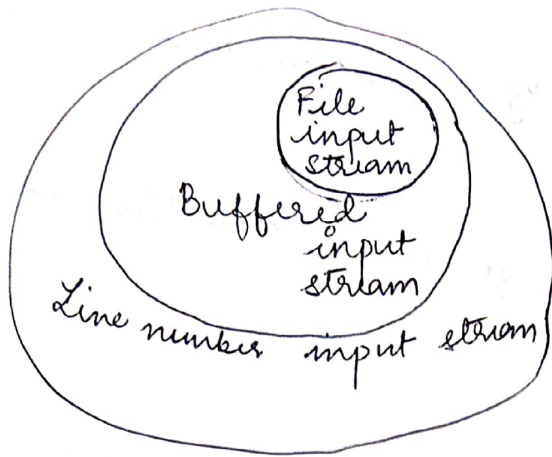 File
input
stream
Buffered
input
stream
Line number input stream